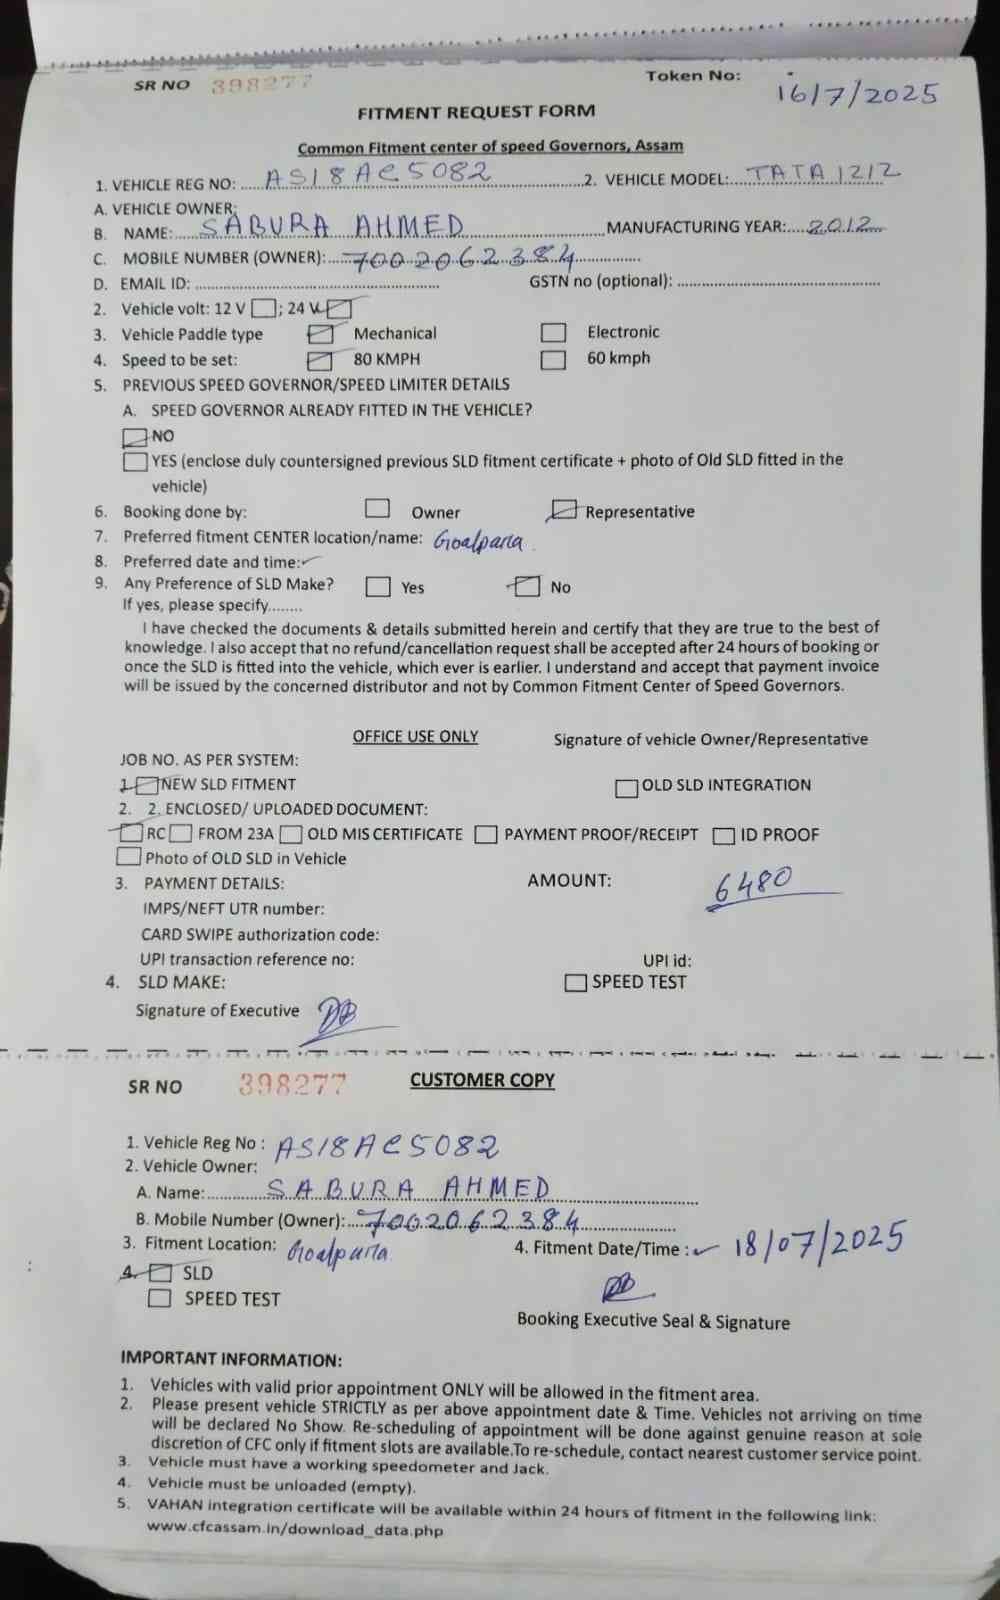 SR NO 398277 Token No: 16/7/2025
FITMENT REQUEST FORM
Common Fitment center of speed Governors, Assam
1. VEHICLE REG NO: AS18AC5082 2. VEHICLE MODEL: TATA 1212
A. VEHICLE OWNER:
B. NAME: SABURA AHMED MANUFACTURING YEAR: 2012
C. MOBILE NUMBER (OWNER): 7002062384
D. EMAIL ID: GSTN no (optional):
2. Vehicle volt: 12 V ; 24 V
3. Vehicle Paddle type Mechanical Electronic
4. Speed to be set: 80 KMPH 60 kmph
5. PREVIOUS SPEED GOVERNOR/SPEED LIMITER DETAILS
A. SPEED GOVERNOR ALREADY FITTED IN THE VEHICLE?
NO
YES (enclose duly countersigned previous SLD fitment certificate + photo of Old SLD fitted in the
vehicle)
6. Booking done by: Owner Representative
7. Preferred fitment CENTER location/name: Goalparia
8. Preferred date and time:
9. Any Preference of SLD Make? Yes No
If yes, please specify........
I have checked the documents & details submitted herein and certify that they are true to the best of
knowledge. I also accept that no refund/cancellation request shall be accepted after 24 hours of booking or
once the SLD is fitted into the vehicle, which ever is earlier. I understand and accept that payment invoice
will be issued by the concerned distributor and not by Common Fitment Center of Speed Governors.
OFFICE USE ONLY Signature of vehicle Owner/Representative
JOB NO. AS PER SYSTEM:
1. NEW SLD FITMENT OLD SLD INTEGRATION
2. 2. ENCLOSED/ UPLOADED DOCUMENT:
RC FROM 23A OLD MIS CERTIFICATE PAYMENT PROOF/RECEIPT ID PROOF
Photo of OLD SLD in Vehicle
3. PAYMENT DETAILS: AMOUNT: 6480
IMPS/NEFT UTR number:
CARD SWIPE authorization code:
UPI transaction reference no: UPI id:
4. SLD MAKE: SPEED TEST
Signature of Executive
SR NO 398277 CUSTOMER COPY
1. Vehicle Reg No : AS18AC5082
2. Vehicle Owner:
A. Name: SABURA AHMED
B. Mobile Number (Owner): 7002062384
3. Fitment Location: Goalparia 4. Fitment Date/Time : 18/07/2025
4. SLD
SPEED TEST
Booking Executive Seal & Signature
IMPORTANT INFORMATION:
1. Vehicles with valid prior appointment ONLY will be allowed in the fitment area.
2. Please present vehicle STRICTLY as per above appointment date & Time. Vehicles not arriving on time
will be declared No Show. Re-scheduling of appointment will be done against genuine reason at sole
discretion of CFC only if fitment slots are available.To re-schedule, contact nearest customer service point.
3. Vehicle must have a working speedometer and Jack.
4. Vehicle must be unloaded (empty).
5. VAHAN integration certificate will be available within 24 hours of fitment in the following link:
www.cfcassam.in/download_data.php